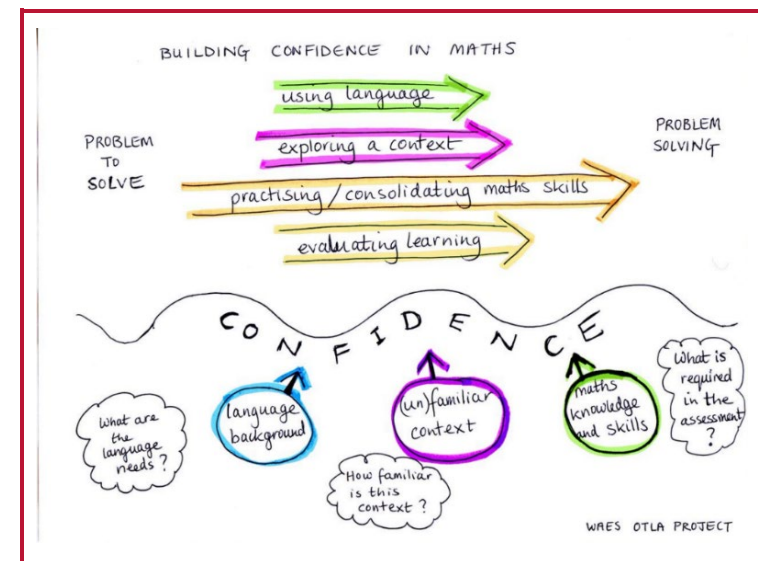 BUILDING CONFIDENCE IN MATHS
using language
exploring a context
PROBLEM
TO
SOLVE
PROBLEM
SOLVING
practising/consolidating maths skills
evaluating learning
CONFIDENCE
What are
the
language
needs?
language
background
(un)familiar
context
How familiar
is this
context?
maths
knowledge
and skills
What is
required
in the
assessment
?
WAES OTLA PROJECT